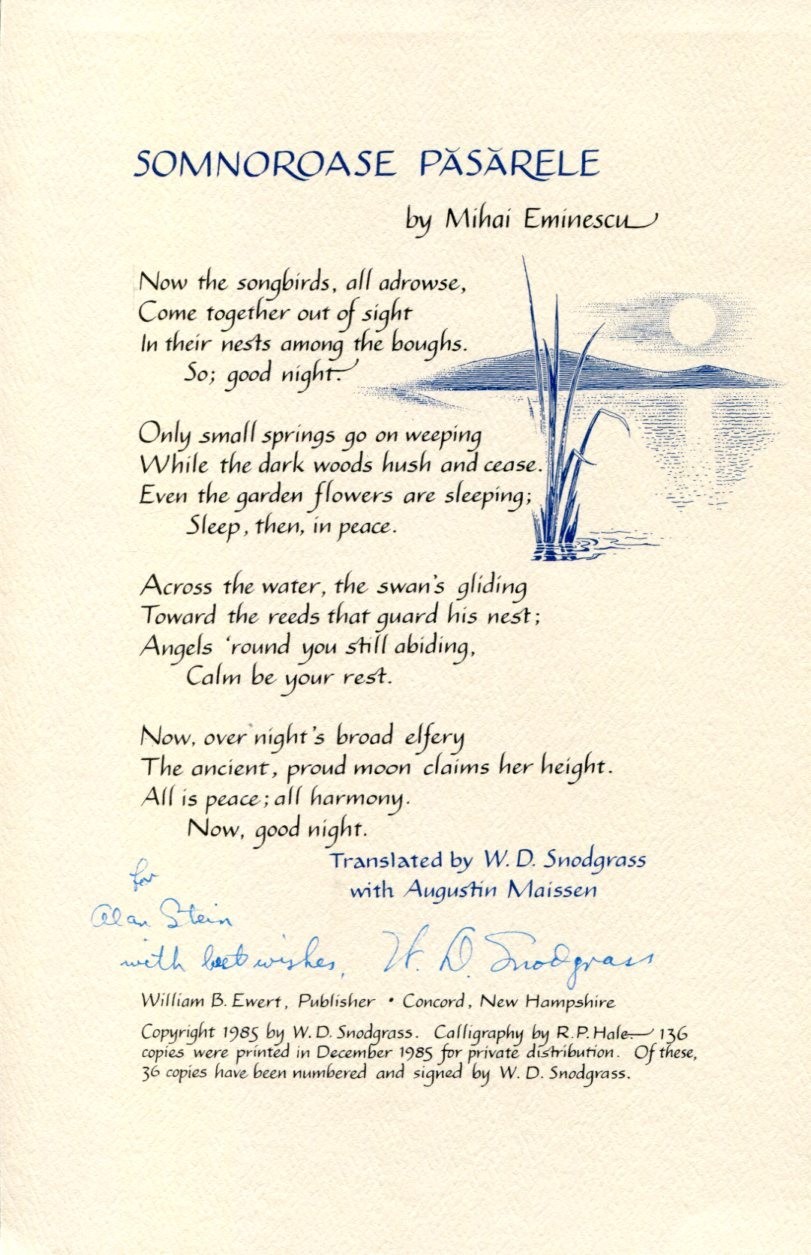 SOMNOROASE PĂSĂRELE
by Mihai Eminescu
Now the songbirds, all adrowse,
Come together out of sight
In their nests among the boughs.
So; good night.
Only small springs go on weeping
While the dark woods hush and cease.
Even the garden flowers are sleeping;
Sleep, then, in peace.
Across the water, the swan's gliding
Toward the reeds that guard his nest;
Angels 'round you still abiding,
Calm be your rest.
Now, over night's broad elfery
The ancient, proud moon claims her height.
All is peace; all harmony.
Now, good night.
Translated by W. D. Snodgrass
with Augustin Maissen
for
Alan Stein
with best wishes, W. D. Snodgrass
William B. Ewert, Publisher • Concord, New Hampshire
Copyright 1985 by W. D. Snodgrass. Calligraphy by R. P. Hale— 136
copies were printed in December 1985 for private distribution. Of these,
36 copies have been numbered and signed by W. D. Snodgrass.